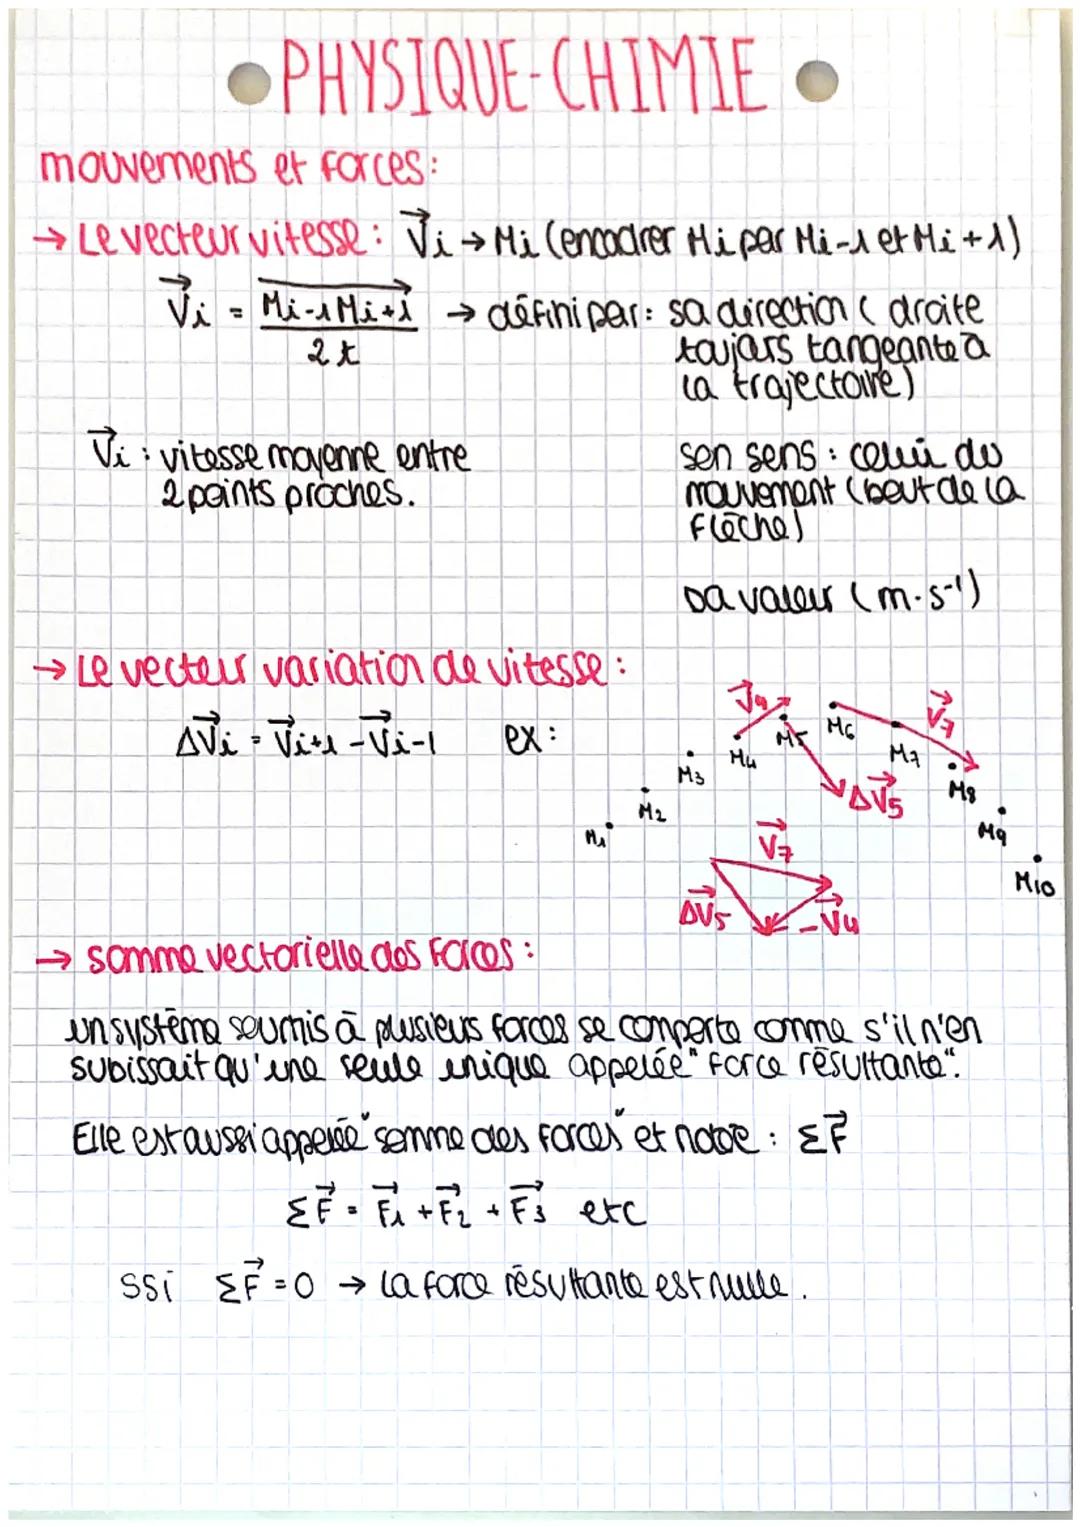 PHYSIQUE-CHIMIE
mouvements et forces:
→ Le vecteur vitesse: V⃗i → Mi (encadrer Mi par Mi-1 et Mi+1)
V⃗i = Mi-1Mi+1 / 2t → défini par: sa direction (droite
toujours tangeante à
la trajectoire)
V⃗i : vitesse moyenne entre
2 points proches.
son sens : celui du
mouvement (bout de la
flèche)
sa valeur (m·s⁻¹)
→ Le vecteur variation de vitesse :
ΔV⃗i = V⃗i+1 - V⃗i-1 ex:
V⃗4
M6
V⃗7
M5
M4
M7
M3
M8
ΔV⃗5
M2
M9
M1
V⃗7
M10
ΔV⃗5
-V⃗4
→ somme vectorielle des forces :
un système soumis à plusieurs forces se comporte comme s'il n'en
subissait qu'une seule unique appelée "force résultante".
Elle est aussi appelée "somme des forces" et notée : ΣF⃗
ΣF⃗ = F⃗1 + F⃗2 + F⃗3 etc
ssi ΣF⃗ = 0 → la force résultante est nulle.